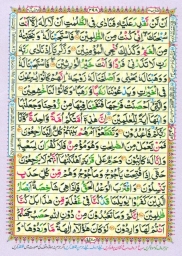 اَنْ لَّنْ نَّقْدِرَ عَلَيْهِ فَنَادٰى فِي الظُّلُمٰتِ اَنْ لَّآ اِلٰهَ اِلَّآ اَنْتَ
سُبْحٰنَكَ اِنِّيْ كُنْتُ مِنَ الظّٰلِمِيْنَ فَاسْتَجَبْنَا لَهٗ وَنَجَّيْنٰهُ
مِنَ الْغَمِّ وَكَذٰلِكَ نُـْۨجِي الْمُؤْمِنِيْنَ وَزَكَرِيَّآ اِذْ نَادٰى رَبَّهٗ
رَبِّ لَا تَذَرْنِيْ فَرْدًا وَّاَنْتَ خَيْرُ الْوٰرِثِيْنَ فَاسْتَجَبْنَا لَهٗ
وَوَهَبْنَا لَهٗ يَحْيٰى وَاَصْلَحْنَا لَهٗ زَوْجَهٗ اِنَّهُمْ كَانُوْا يُسٰرِعُوْنَ
فِي الْخَيْرٰتِ وَيَدْعُوْنَنَا رَغَبًا وَّرَهَبًا وَكَانُوْا لَنَا خٰشِعِيْنَ
وَالَّتِيْٓ اَحْصَنَتْ فَرْجَهَا فَنَفَخْنَا فِيْهَا مِنْ رُّوْحِنَا وَجَعَلْنٰهَا
وَابْنَهَآ اٰيَةً لِّلْعٰلَمِيْنَ اِنَّ هٰذِهٖٓ اُمَّتُكُمْ اُمَّةً وَّاحِدَةً وَّاَنَا
رَبُّكُمْ فَاعْبُدُوْنِ وَتَقَطَّعُوْٓا اَمْرَهُمْ بَيْنَهُمْ كُلٌّ اِلَيْنَا رٰجِعُوْنَ
فَمَنْ يَّعْمَلْ مِنَ الصّٰلِحٰتِ وَهُوَ مُؤْمِنٌ فَلَا كُفْرَانَ لِسَعْيِهٖ
وَاِنَّا لَهٗ كٰتِبُوْنَ وَحَرٰمٌ عَلٰى قَرْيَةٍ اَهْلَكْنٰهَآ اَنَّهُمْ لَا يَرْجِعُوْنَ
حَتّٰىٓ اِذَا فُتِحَتْ يَاْجُوْجُ وَمَاْجُوْجُ وَهُمْ مِّنْ كُلِّ حَدَبٍ
يَّنْسِلُوْنَ وَاقْتَرَبَ الْوَعْدُ الْحَقُّ فَاِذَا هِيَ شَاخِصَةٌ اَبْصَارُ
الَّذِيْنَ كَفَرُوْا يٰوَيْلَنَا قَدْ كُنَّا فِيْ غَفْلَةٍ مِّنْ هٰذَا بَلْ كُنَّا
ظٰلِمِيْنَ اِنَّكُمْ وَمَا تَعْبُدُوْنَ مِنْ دُوْنِ اللّٰهِ حَصَبُ جَهَنَّمَ
اَنْتُمْ لَهَا وٰرِدُوْنَ لَوْ كَانَ هٰٓؤُلَآءِ اٰلِهَةً مَّا وَرَدُوْهَا وَ